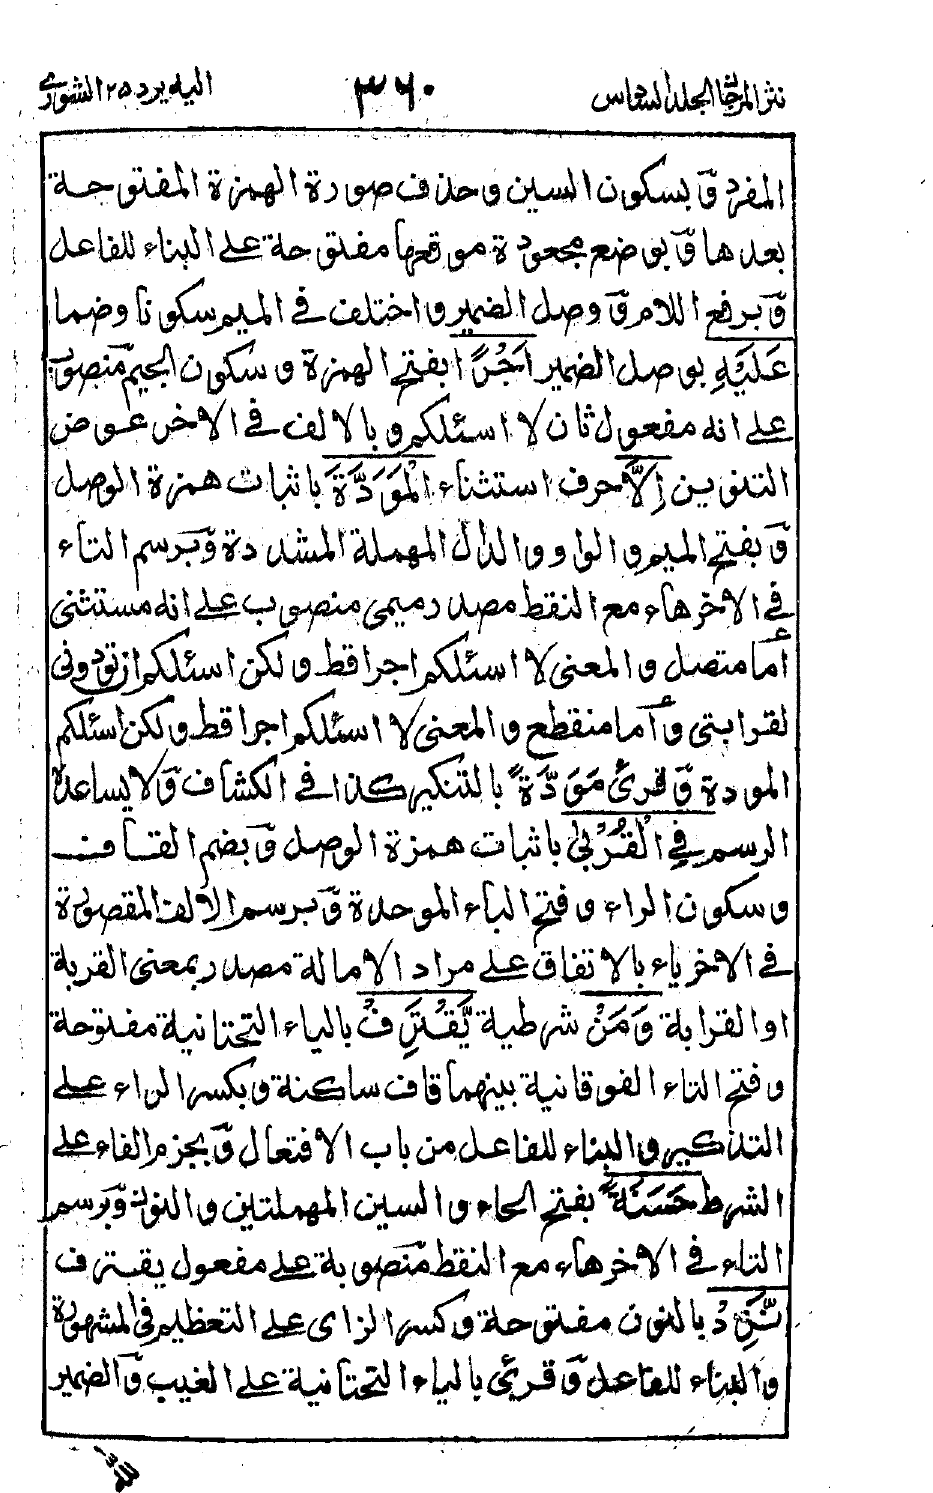 نثر المرجان المجلد السادس ٣٦٠ اليه يرد ٢٥ الشورى
المفرد وَبسكون السين وحذف صورة الهمزة المفتوحة
بعدها وَبوضع مجعودة موقعها مفتوحة على البناء للفاعل
وَبرفع اللام وَوصل الضمير واختلف في الميم سكونا وضما
عَلَيْهِ بوصل الضمير اَجْرًا بفتح الهمزة وسكون الجيم منصوب
على انه مفعول ثان لا اسئلكم وبالالف في الاخر عوض
التنوين اِلَّا حرف استثناء الْمَوَدَّةَ باثبات همزة الوصل
وَبفتح الميم والواو والدال المهملة المشددة وَبرسم التاء
في الاخر هاء مع النقط مصدر ميمى منصوب على انه مستثنى
أما متصل والمعنى لا اسئلكم اجرا قط ولكن اسئلكم ان تودونى
لقرابتى وأما منقطع والمعنى لا اسئلكم اجرا قط ولكن اسئلكم
المودة وَقرئ مَوَدَّةً بالتنكير كذا في الكشاف وَلا يساعده
الرسم فِي الْقُرْبٰى باثبات همزة الوصل وَبضم القاف
وسكون الراء وفتح الباء الموحدة وَبرسم الالف المقصورة
في الاخر ياء بالاتفاق على مراد الامالة مصدر بمعنى القربة
او القرابة وَمَنْ شرطية يَّقْتَرِفْ بالياء التحتانية مفتوحة
وفتح التاء الفوقانية بينهما قاف ساكنة وبكسر الراء على
التذكير والبناء للفاعل من باب الافتعال وَبجزم الفاء على
الشرط حَسَنَةً بفتح الحاء والسين المهملتين والنون وَبرسم
التاء في الاخر هاء مع النقط منصوبة على مفعول يقترف
نَّزِدْ بالنون مفتوحة وكسر الزاى على التعظيم في المشهورة
والبناء للفاعل وَقرئ بالياء التحتانية على الغيب وَالضمير
لله